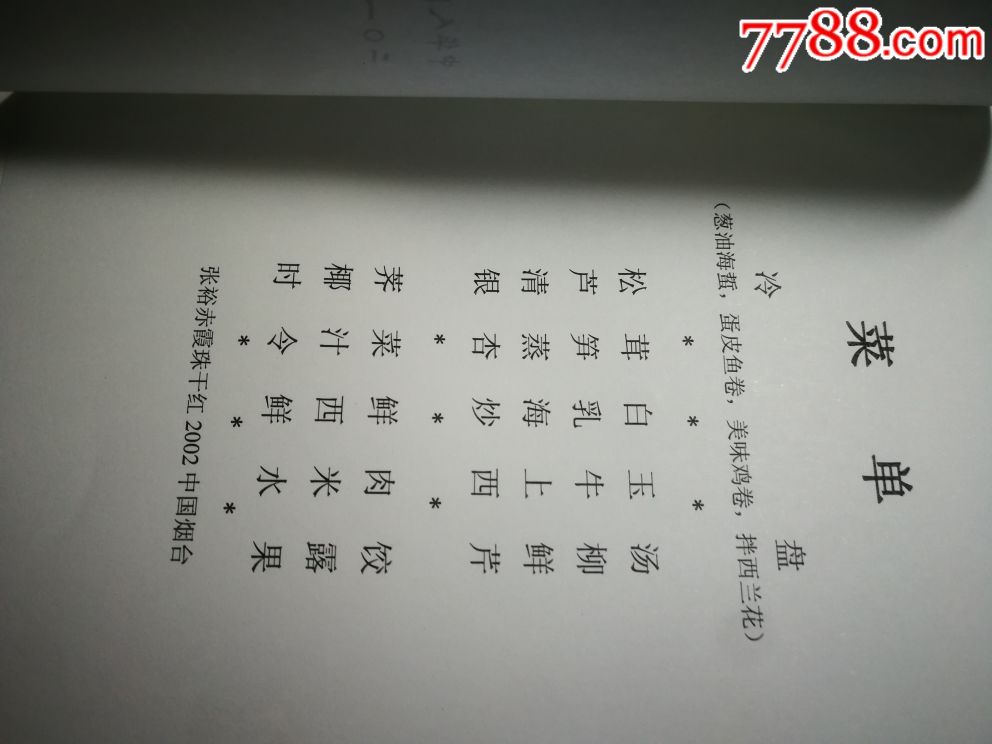 7788.com
菜 单
冷 盘
（葱油海蜇，蛋皮鱼卷，美味鸡卷，拌西兰花）
* * *
松茸白玉汤
芦笋乳牛柳
清蒸海上鲜
银杏炒西芹
* * *
荠菜鲜肉饺
椰汁西米露
时令鲜水果
* * *
张裕赤霞珠干红 2002 中国烟台